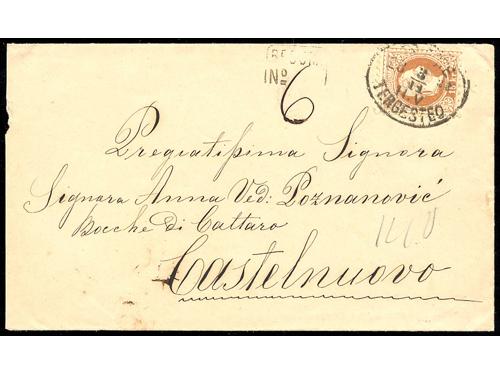 RECOM
No
6
TERGESTEO
Pregiatissima Signora
Signora Anna Ved: Poznanović
Bocche di Cattaro
Castelnuovo